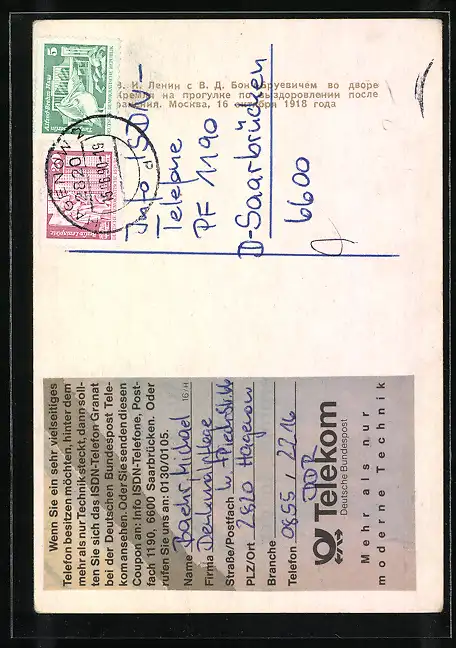 В. И. Ленин с В. Д. Бонч-Бруевичем во дворе
Кремля на прогулке по выздоровлении после
ранения. Москва, 16 октября 1918 года
5
Info ISDN-
Telefone
PF 1190
D-Saarbrücken
6600
HAGENOW
2820
Wenn Sie ein sehr vielseitiges
Telefon besitzen möchten, hinter dem
mehr als nur Technik steckt, dann soll-
ten Sie sich das ISDN-Telefon Granat
bei der Deutschen Bundespost Tele-
kom ansehen. Oder Sie senden diesen
Coupon an: Info ISDN-Telefone, Post-
fach 1190, 6600 Saarbrücken. Oder
rufen Sie uns an: 0130/0105.
Name Michael 16/H
Firma Denkmalpflege
Straße/Postfach
PLZ/Ort 2820 Hagenow
Branche
Telefon 0855 / 2216
DDR
Telekom
Deutsche Bundespost
Mehr als nur
moderne Technik